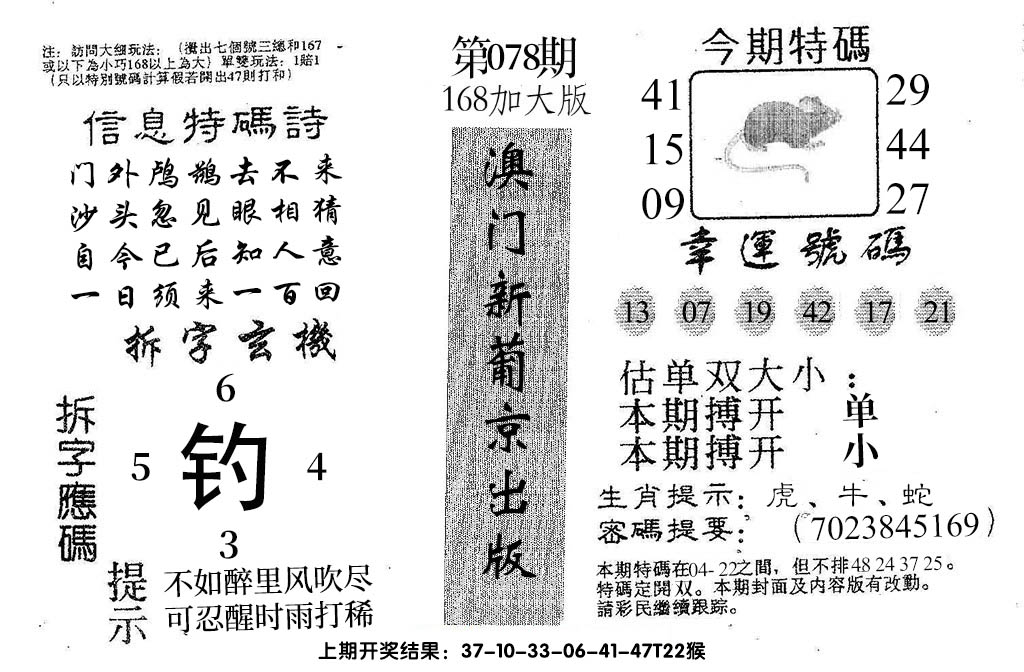 注：訪問大細玩法：（攪出七個號三總和167
或以下為小巧168以上為大）單雙玩法：1賠1
（只以特別號碼計算假若開出47則打和）
信息特碼詩
门外鸬鹚去不来
沙头忽见眼相猜
自今已后知人意
一日须来一百回
拆字玄機
拆字應碼
6
5 钓 4
3
提示
不如醉里风吹尽
可忍醒时雨打稀
第078期
168加大版
澳门新葡京出版
今期特碼
41 29
15 44
09 27
幸運號碼
13 07 19 42 17 21
估单双大小：
本期搏开 单
本期搏开 小
生肖提示：虎、牛、蛇
密碼提要：（7023845169）
本期特碼在04-22之間，但不排48 24 37 25。
特碼定開双。本期封面及内容版有改動。
請彩民繼續跟踪。
上期开奖结果：37-10-33-06-41-47T22猴